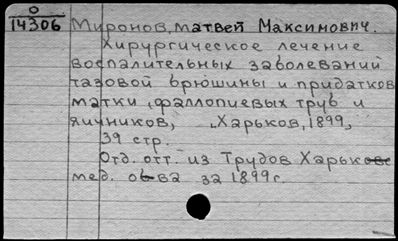 О
14306 Миронов, Матвей Максимович.
Хирургическое лечение
воспалительных заболеваний
тазовой брюшины и придатков
матки, фаллопиевых труб и
яичников, Харьков, 1899,
39 стр.
Отд. отт. из Трудов Харьков
мед. о-ва за 1899г.